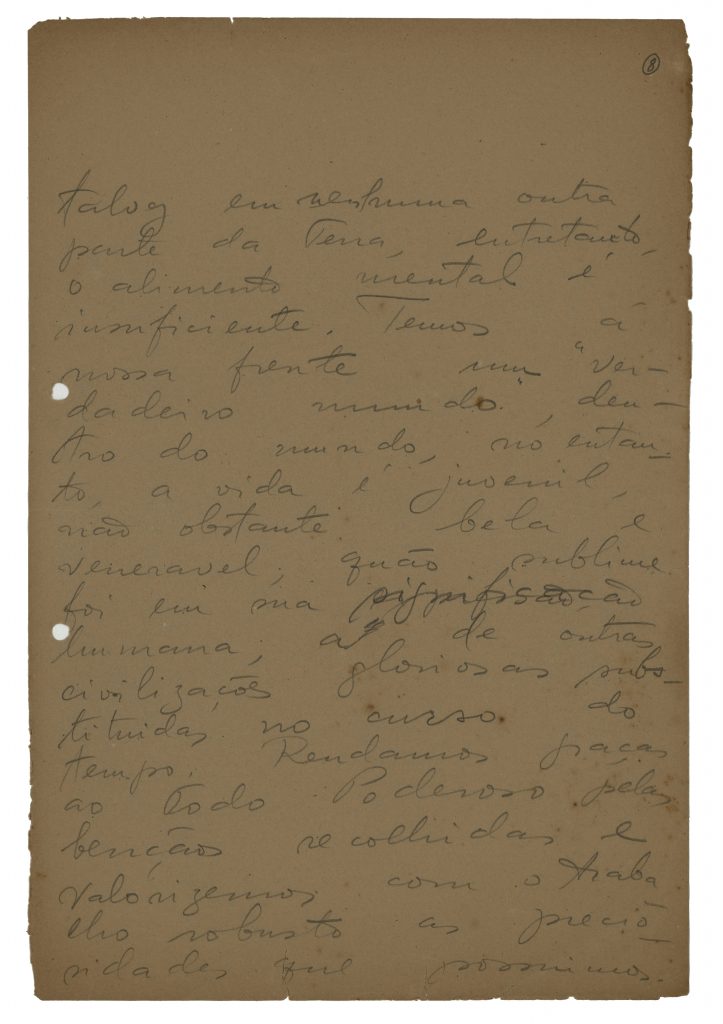 8
talog em nenhuma outra
parte da Terra, entretanto,
o alimento mental é
insuficiente. Temos á
nossa frente um "ver-
dadeiro mundo", den-
tro do mundo, no entan-
to, a vida é juvenil,
não obstante bela e
veneravel, quão sublime
foi em sua significação
humana, a de outras
civilizações gloriosas subs-
tituidas no curso do
tempo. Rendamos graças
ao Todo Poderoso pelas
benções recolhidas e
valorizemos com o traba
lho robusto as precio-
sidades que possuimos.